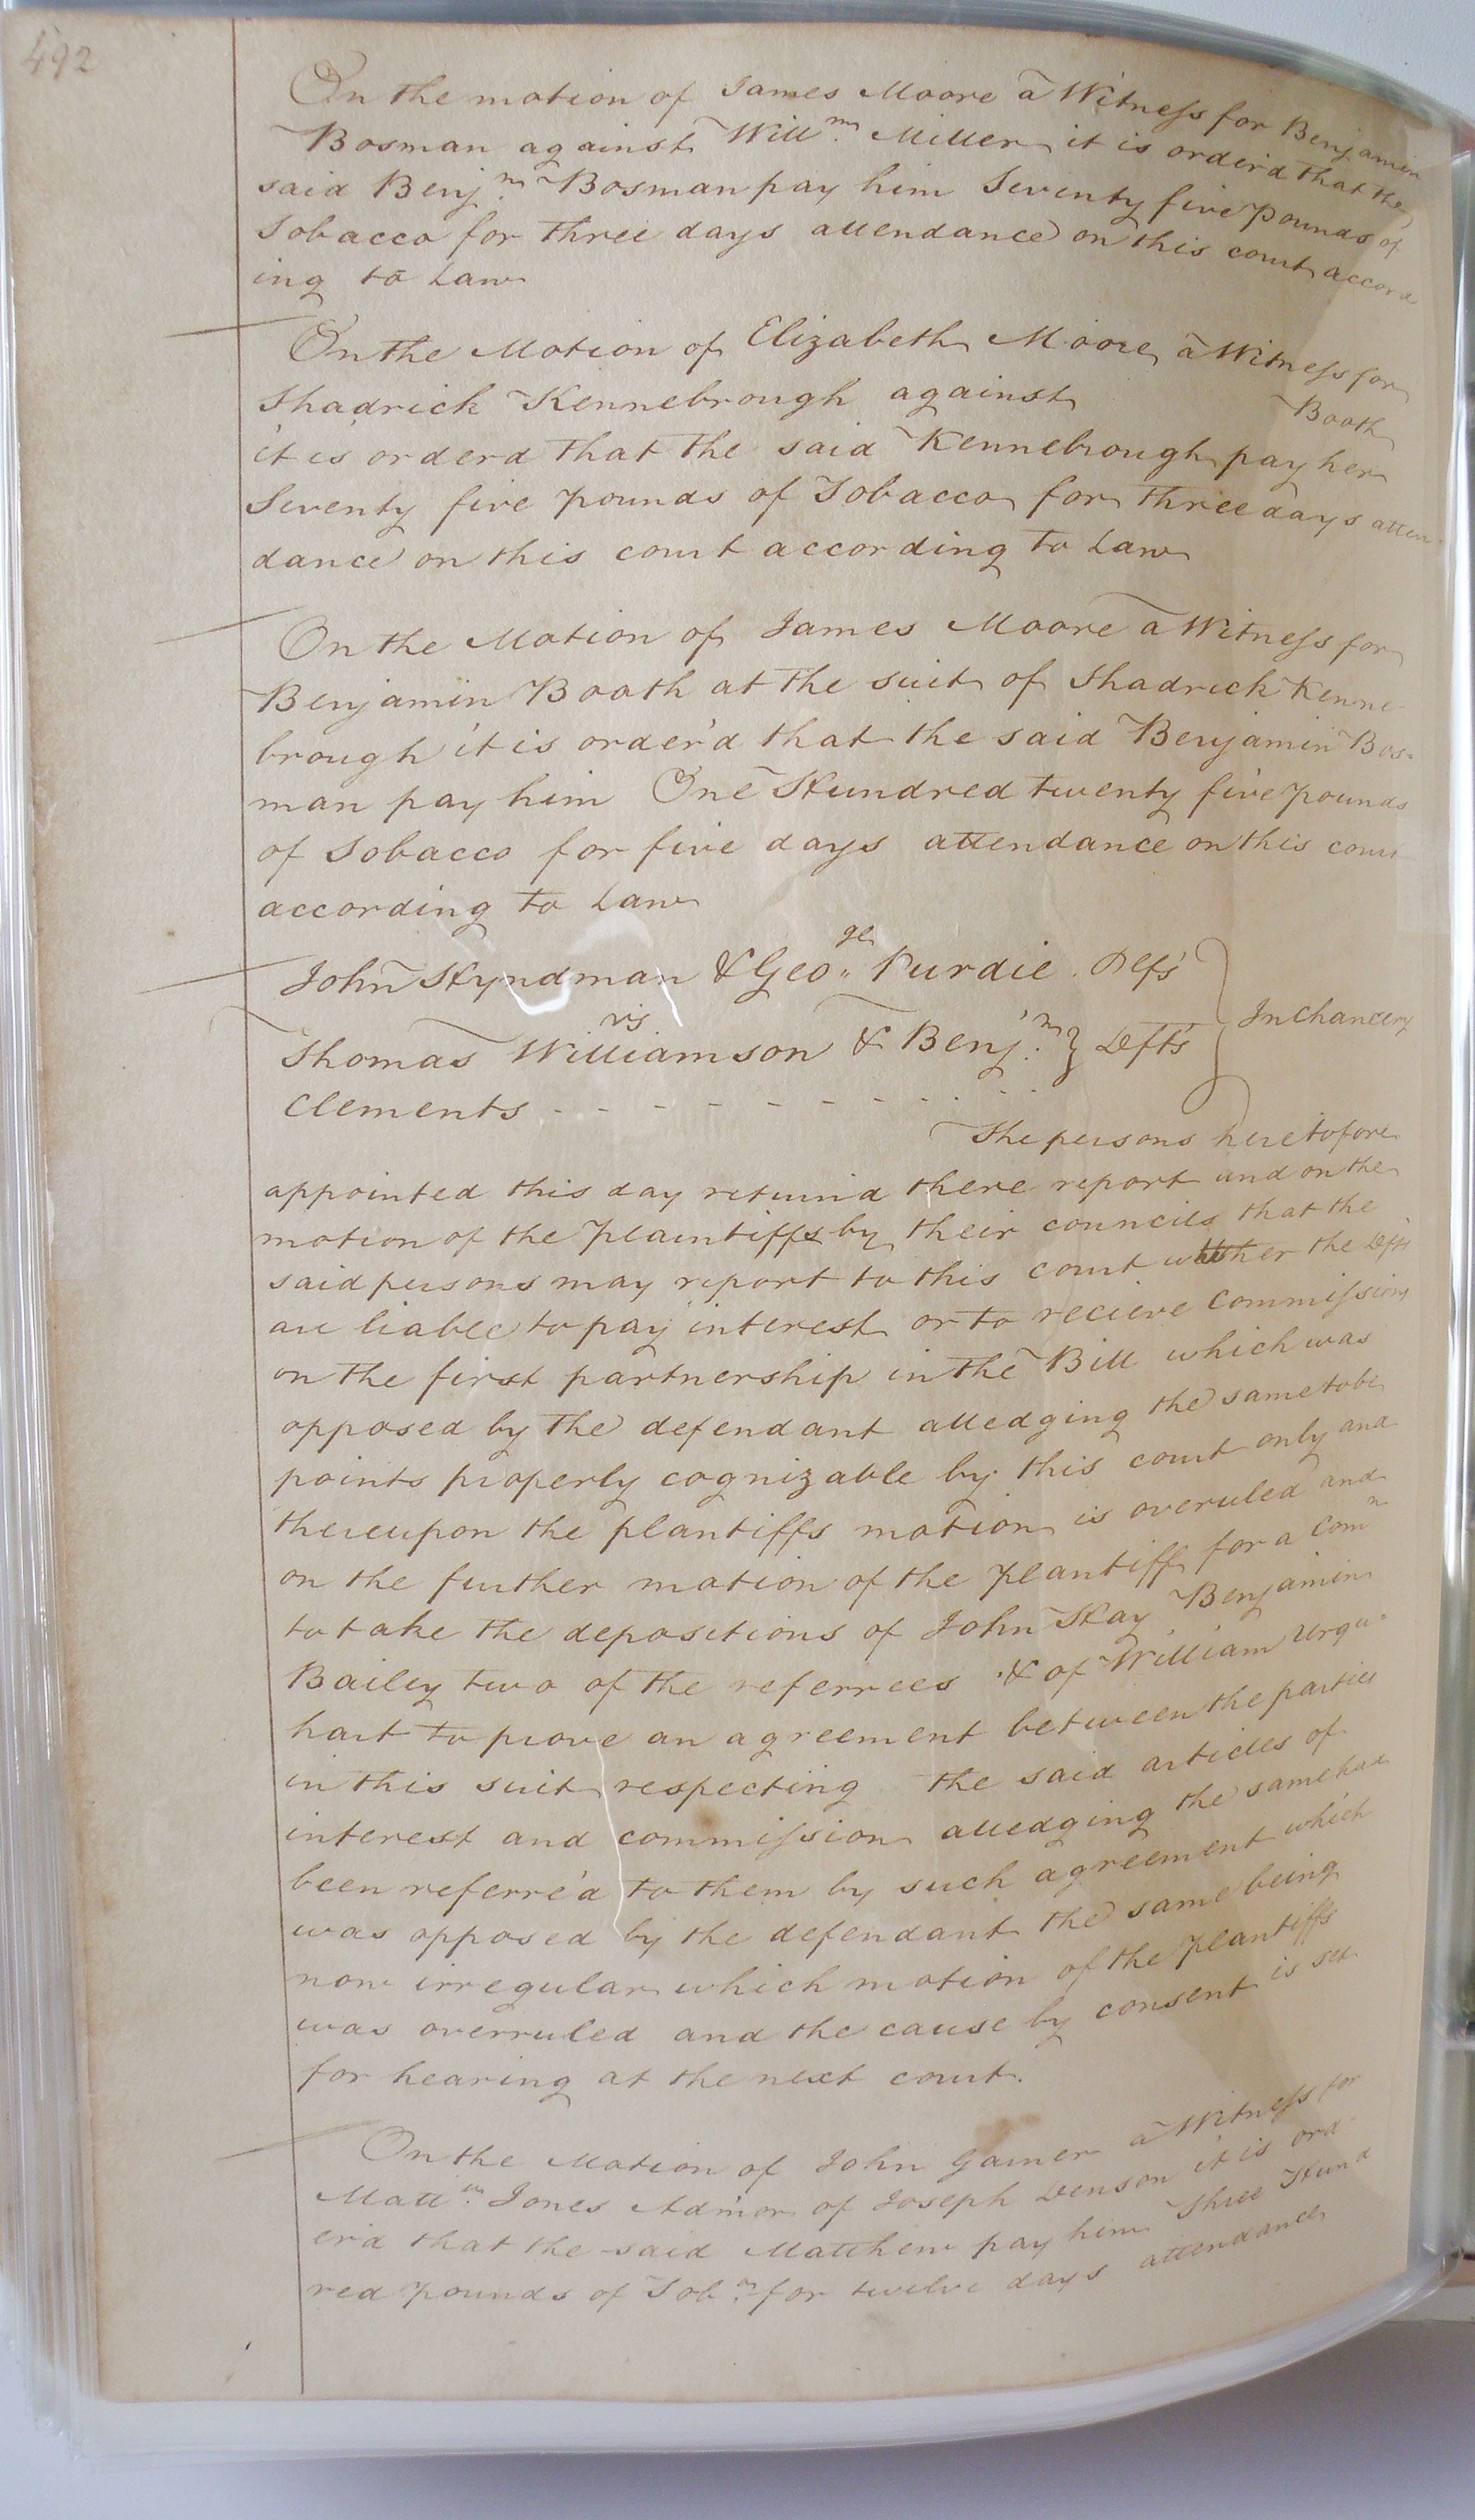 492
On the motion of James Moore a Witness for Benjamin
Bosman against Will.m Miller it is orderd that the
said Benj.n Bosman pay him Seventy five pounds of
Tobacco for three days attendance on this court accord
ing to Law
On the Motion of Elizabeth Moore a Witness for
Shadrick Kennebrough against Booth
it is orderd that the said Kennebrough pay her
Seventy five pounds of Tobacco for three days atten-
dance on this court according to Law
On the Motion of James Moore a Witness for
Benjamin Booth at the suit of Shadrick Kenne-
brough it is order'd that the said Benjamin Bos-
man pay him One Hundred twenty five pounds
of Tobacco for five days attendance on this court
according to Law
John Hyndman & Geo.ge Purdie. Plfs
vs } In Chancery
Thomas Williamson & Benj.n } Defts
Clements - - - - - - - - - -
The persons heretofore
appointed this day return'd there report and on the
motion of the Plaintiffs by their councils that the
said persons may report to this court whether the Defts
are liable to pay interest or to recieve Commissions
on the first partnership in the Bill which was
opposed by the defendant alledging the same to be
points properly cognizable by this court only and
thereupon the plantiffs motion is overuled and
on the further motion of the plantiff for a Comn
to take the depositions of John Hay Benjamin
Bailey two of the referrees & of William Urqu-
hart to prove an agreement between the parties
in this suit respecting the said articles of
interest and commission alledging the same had
been referre'd to them by such agreement which
was opposed by the defendant the same being
now irregular which motion of the plantiffs
was overruled and the cause by consent is set
for hearing at the next court.
On the Motion of John Gainer a Witness for
Matt.w Jones Admor of Joseph Denson it is ord
er'd that the said Matthew pay him Three Hund
red pounds of Tob.o for twelve days attendance